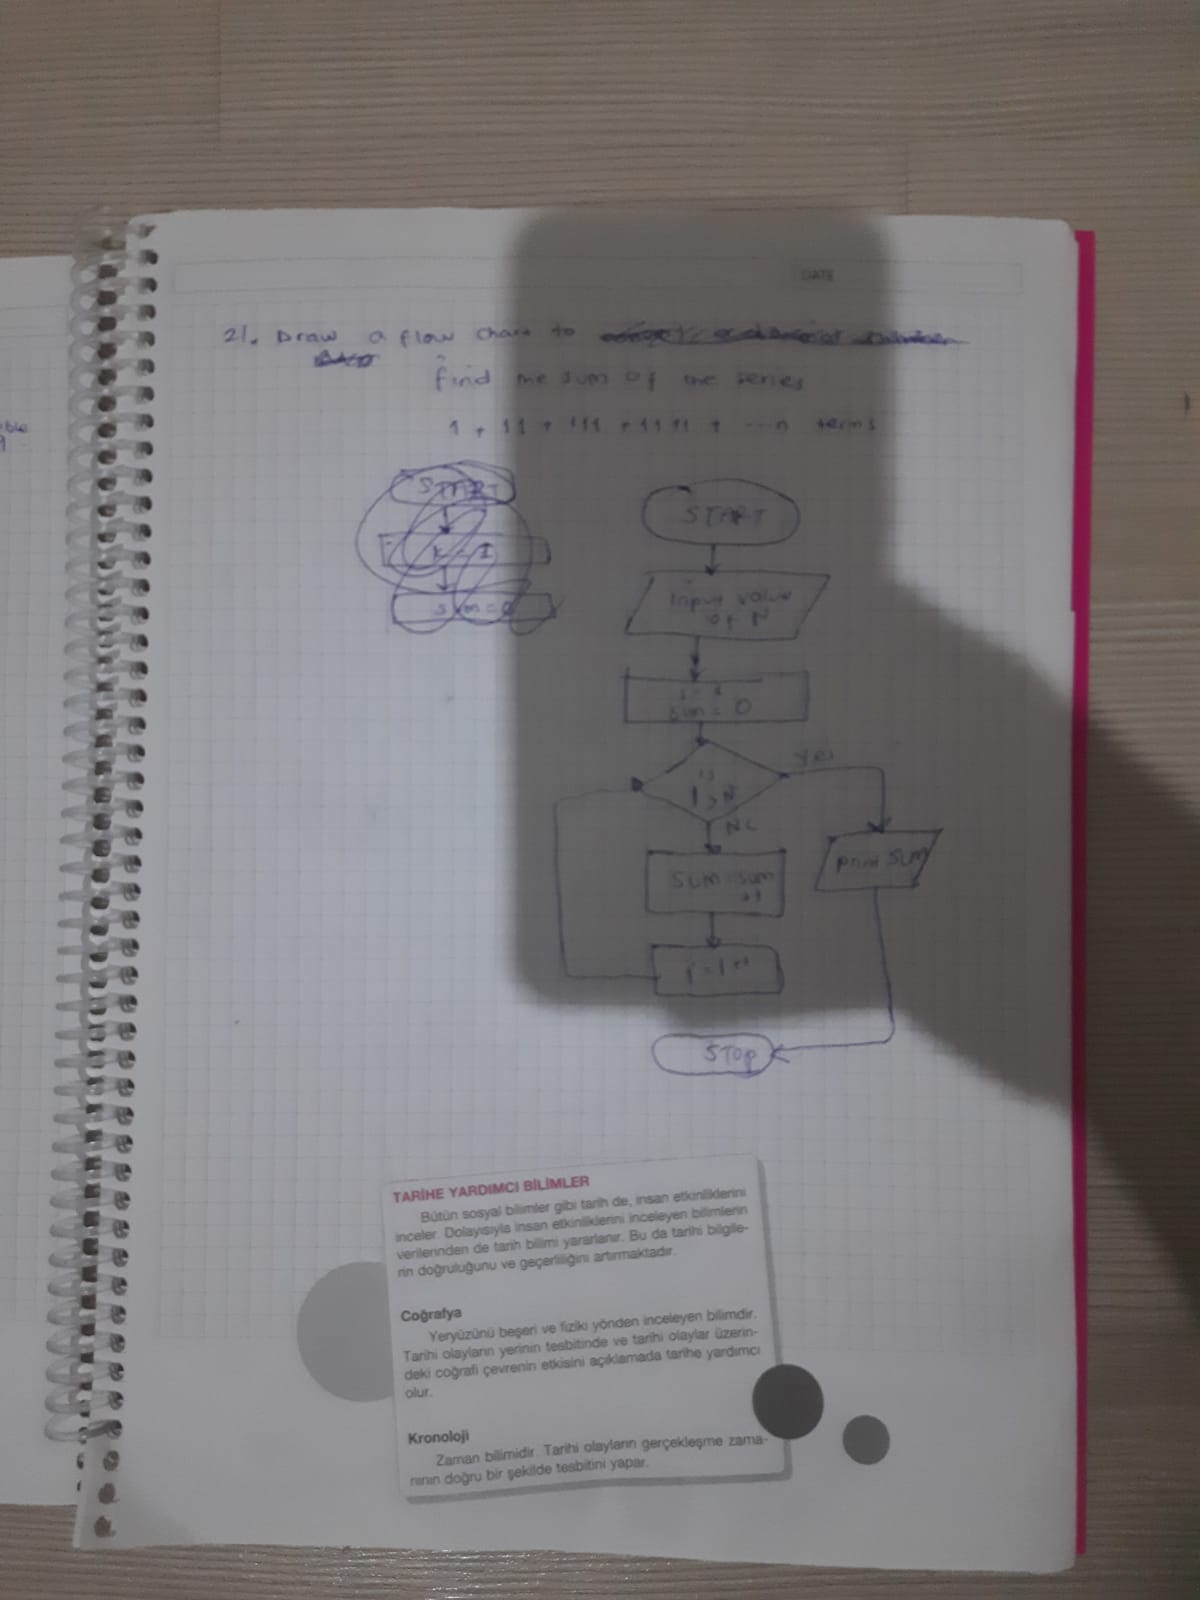 DATE
21. Draw a flow chart to
find the sum of the series
1 + 11 + 111 + 1111 + ---n terms
START
START
Input value
of N
sum = 0
sum = 0
Yes
is
I > N
NO
SUM = sum
+1
print SUM
i = I + 1
STOP
TARİHE YARDIMCI BİLİMLER
Bütün sosyal bilimler gibi tarih de, insan etkinliklerini
inceler. Dolayısıyla insan etkinliklerini inceleyen bilimlerin
verilerinden de tarih bilimi yararlanır. Bu da tarihi bilgile-
rin doğruluğunu ve geçerliliğini artırmaktadır.
Coğrafya
Yeryüzünü beşeri ve fiziki yönden inceleyen bilimdir.
Tarihi olayların yerinin tesbitinde ve tarihi olaylar üzerin-
deki coğrafi çevrenin etkisini açıklamada tarihe yardımcı
olur.
Kronoloji
Zaman bilimidir. Tarihi olayların gerçekleşme zama-
nının doğru bir şekilde tesbitini yapar.